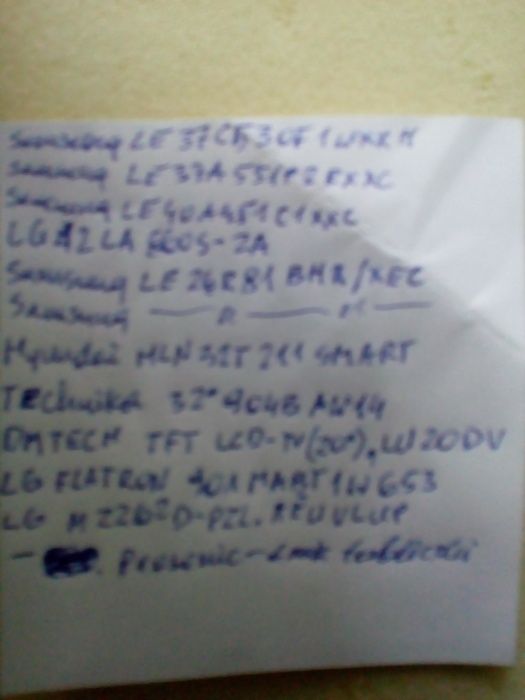 Samsung LE37C530F1WXXH
Samsung LE37A551P2RXXC
Samsung LE40A451C1XXC
LG 42LA 660S-ZA
Samsung LE26R81 BHX/XEC
Samsung — 11 — 11 —
Hyundai HLN 32T 211 SMART
Technika 32" 904B AW14
DMTECH TFT LCD-TV(20"), LW20DV
LG FLATRON
LG M2262D-PZL.
- Prosonic -